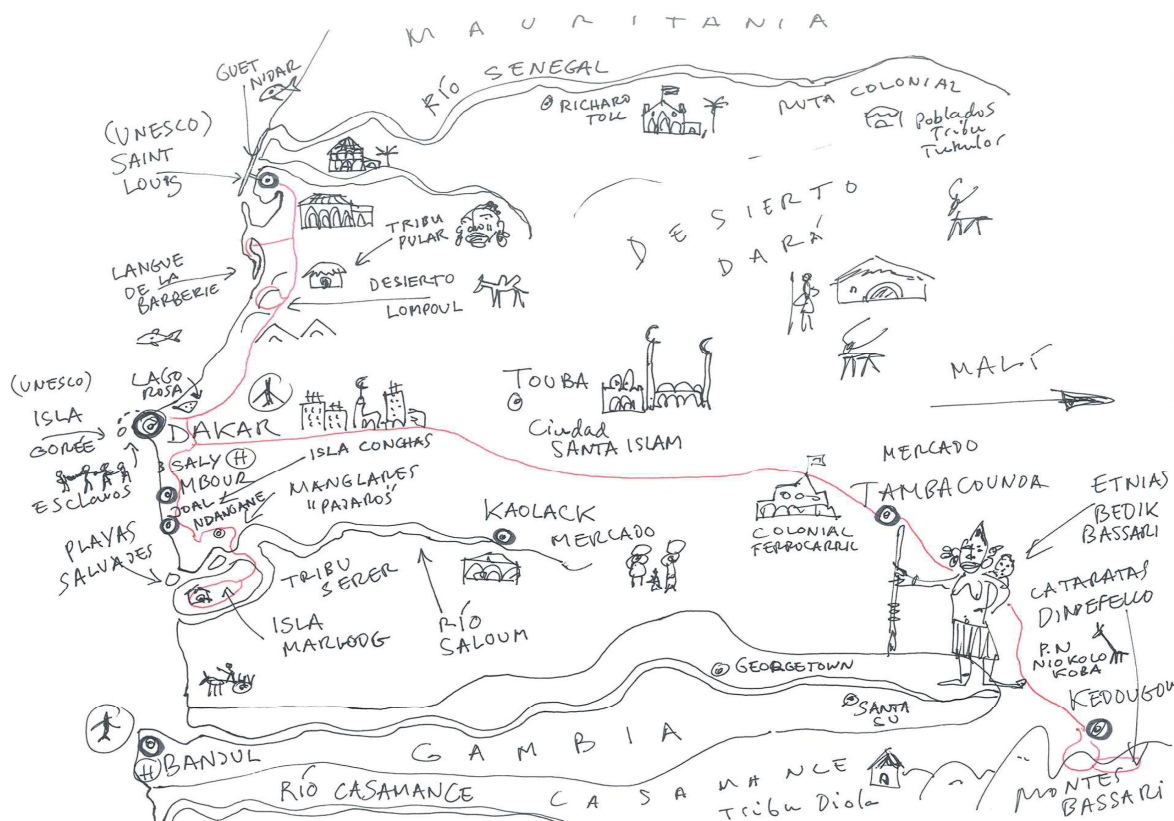 MAURITANIA
GUET
NIDAR
RÍO SENEGAL
RICHARD
TOLL
RUTA COLONIAL
Poblados
Tribu
Tukulor
(UNESCO)
SAINT
LOUIS
TRIBU
PULAR
DESIERTO
DARÁ
LANGUE
DE LA
BARBERIE
DESIERTO
LOMPOUL
MALÍ
(UNESCO)
ISLA
GORÉE
LAGO
ROSA
DAKAR
TOUBA
Ciudad
SANTA ISLAM
ESCLAVOS
SALY H
MBOUR
JOAL
NDANGANE
ISLA CONCHAS
MANGLARES
"PAJAROS"
KAOLACK
MERCADO
COLONIAL
FERROCARRIL
MERCADO
TAMBACOUNDA
ETNIAS
BEDIK
BASSARI
PLAYAS
SALVAJES
TRIBU
SERER
ISLA
MARLODG
RÍO
SALOUM
CATARATAS
DINDEFELLO
P.N
NIOKOLO
KOBA
KEDOUGOU
GEORGETOWN
SANTA
SU
H BANJUL
GAMBIA
RÍO CASAMANCE
CASAMANCE
Tribu Diola
MONTES
BASSARI